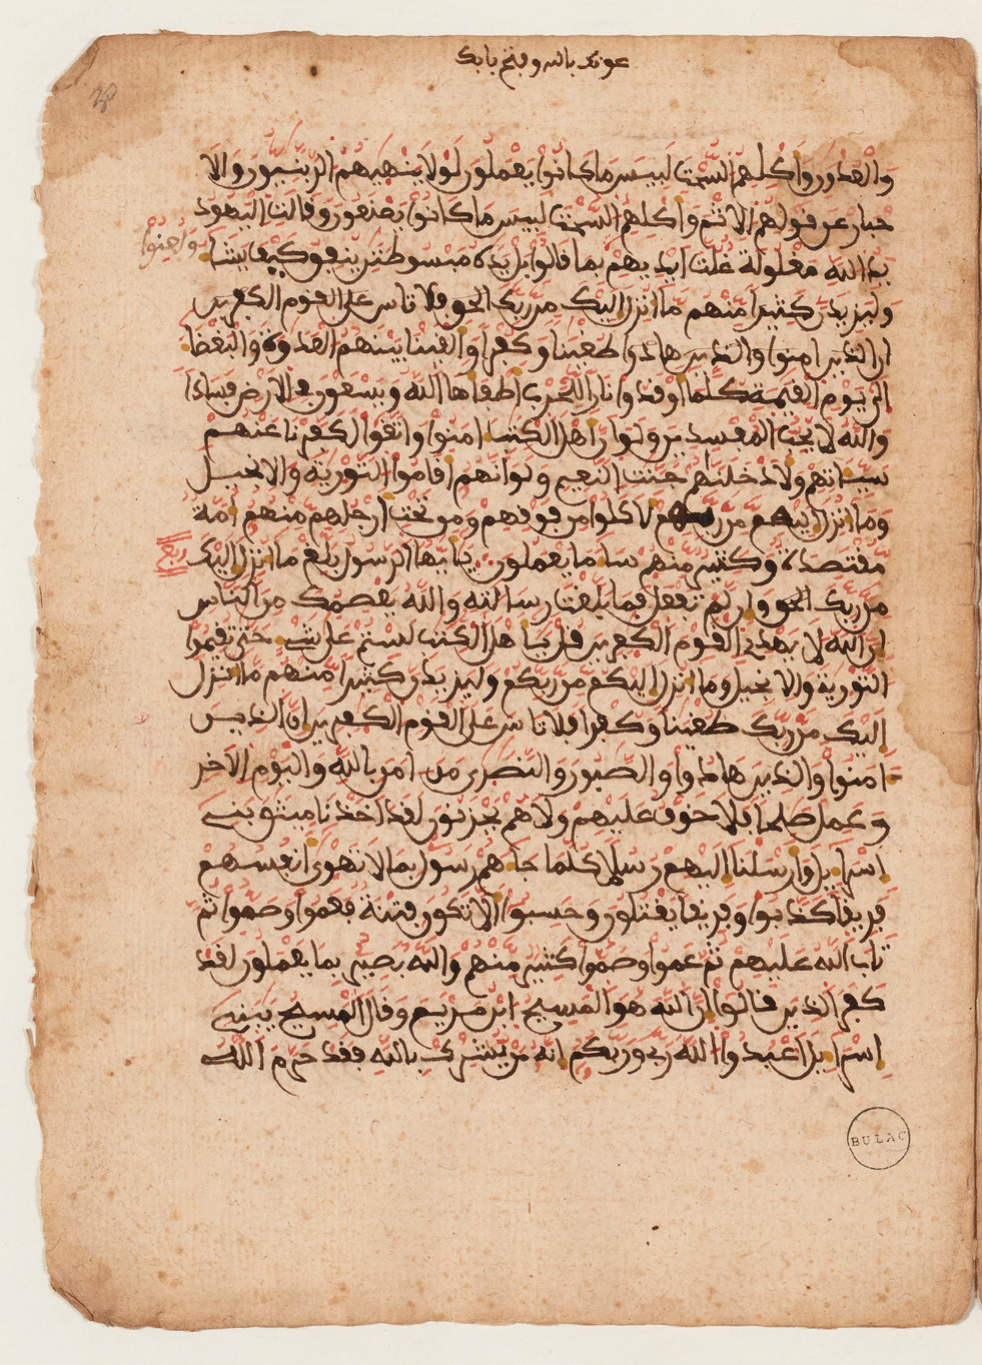 عونك بالله وفتح بابك
والعدون واكلهم السحت لبيس ما كانوا يعملون لولا ينهيهم الربنيون والا
حبار عن قولهم الاثم واكلهم السحت لبيس ما كانوا يصنعون وقالت اليهود
ولعنوا
يد الله مغلولة غلت ايديهم بما قالوا بل يده مبسوطتن ينفق كيف يشا
وليزيدن كثيرا منهم ما انزل اليك من ربك فلا تاس على القوم الكفرين
طغينا وكفرا والقينا بينهم العدوة والبغضا
الى يوم القيمة كلما اوقدوا نارا للحرب اطفاها الله ويسعون في الارض فسادا
والله لا يحب المفسدين ولو ان اهل الكتب امنوا واتقوا لكفرنا عنهم
سيئاتهم ولادخلنهم جنت النعيم ولو انهم اقاموا التورية والانجيل
وما انزل اليهم من ربهم لاكلوا من فوقهم ومن تحت ارجلهم منهم امة
مقتصدة وكثير منهم سا ما يعملون يايها الرسول بلغ ما انزل اليك
ربع
من ربك وان لم تفعل فما بلغت رسالته والله يعصمك من الناس
ان الله لا يهدي القوم الكفرين قل ياهل الكتب لستم على شي حتى تقيموا
التورية والانجيل وما انزل اليكم من ربكم وليزيدن كثيرا منهم ما انزل
اليك من ربك طغينا وكفرا فلا تاس على القوم الكفرين ان الذين
امنوا والذين هادوا والصبون والنصرى من امن بالله واليوم الاخر
وعمل صلحا فلا خوف عليهم ولا هم يحزنون لقد اخذنا ميثق بني
اسرايل وارسلنا اليهم رسلا كلما جاهم رسول بما لا تهوى انفسهم
فريقا كذبوا وفريقا يقتلون وحسبوا الا تكون فتنة فعموا وصموا ثم
تاب الله عليهم ثم عموا وصموا كثير منهم والله بصير بما يعملون لقد
كفر الذين قالوا ان الله هو المسيح ابن مريم وقال المسيح يبني
اسرايل اعبدوا الله ربي وربكم انه من يشرك بالله فقد حرم الله
BULAC